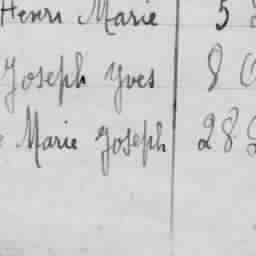 Henri Marie 5
Joseph Yves 8
Marie Joseph 28